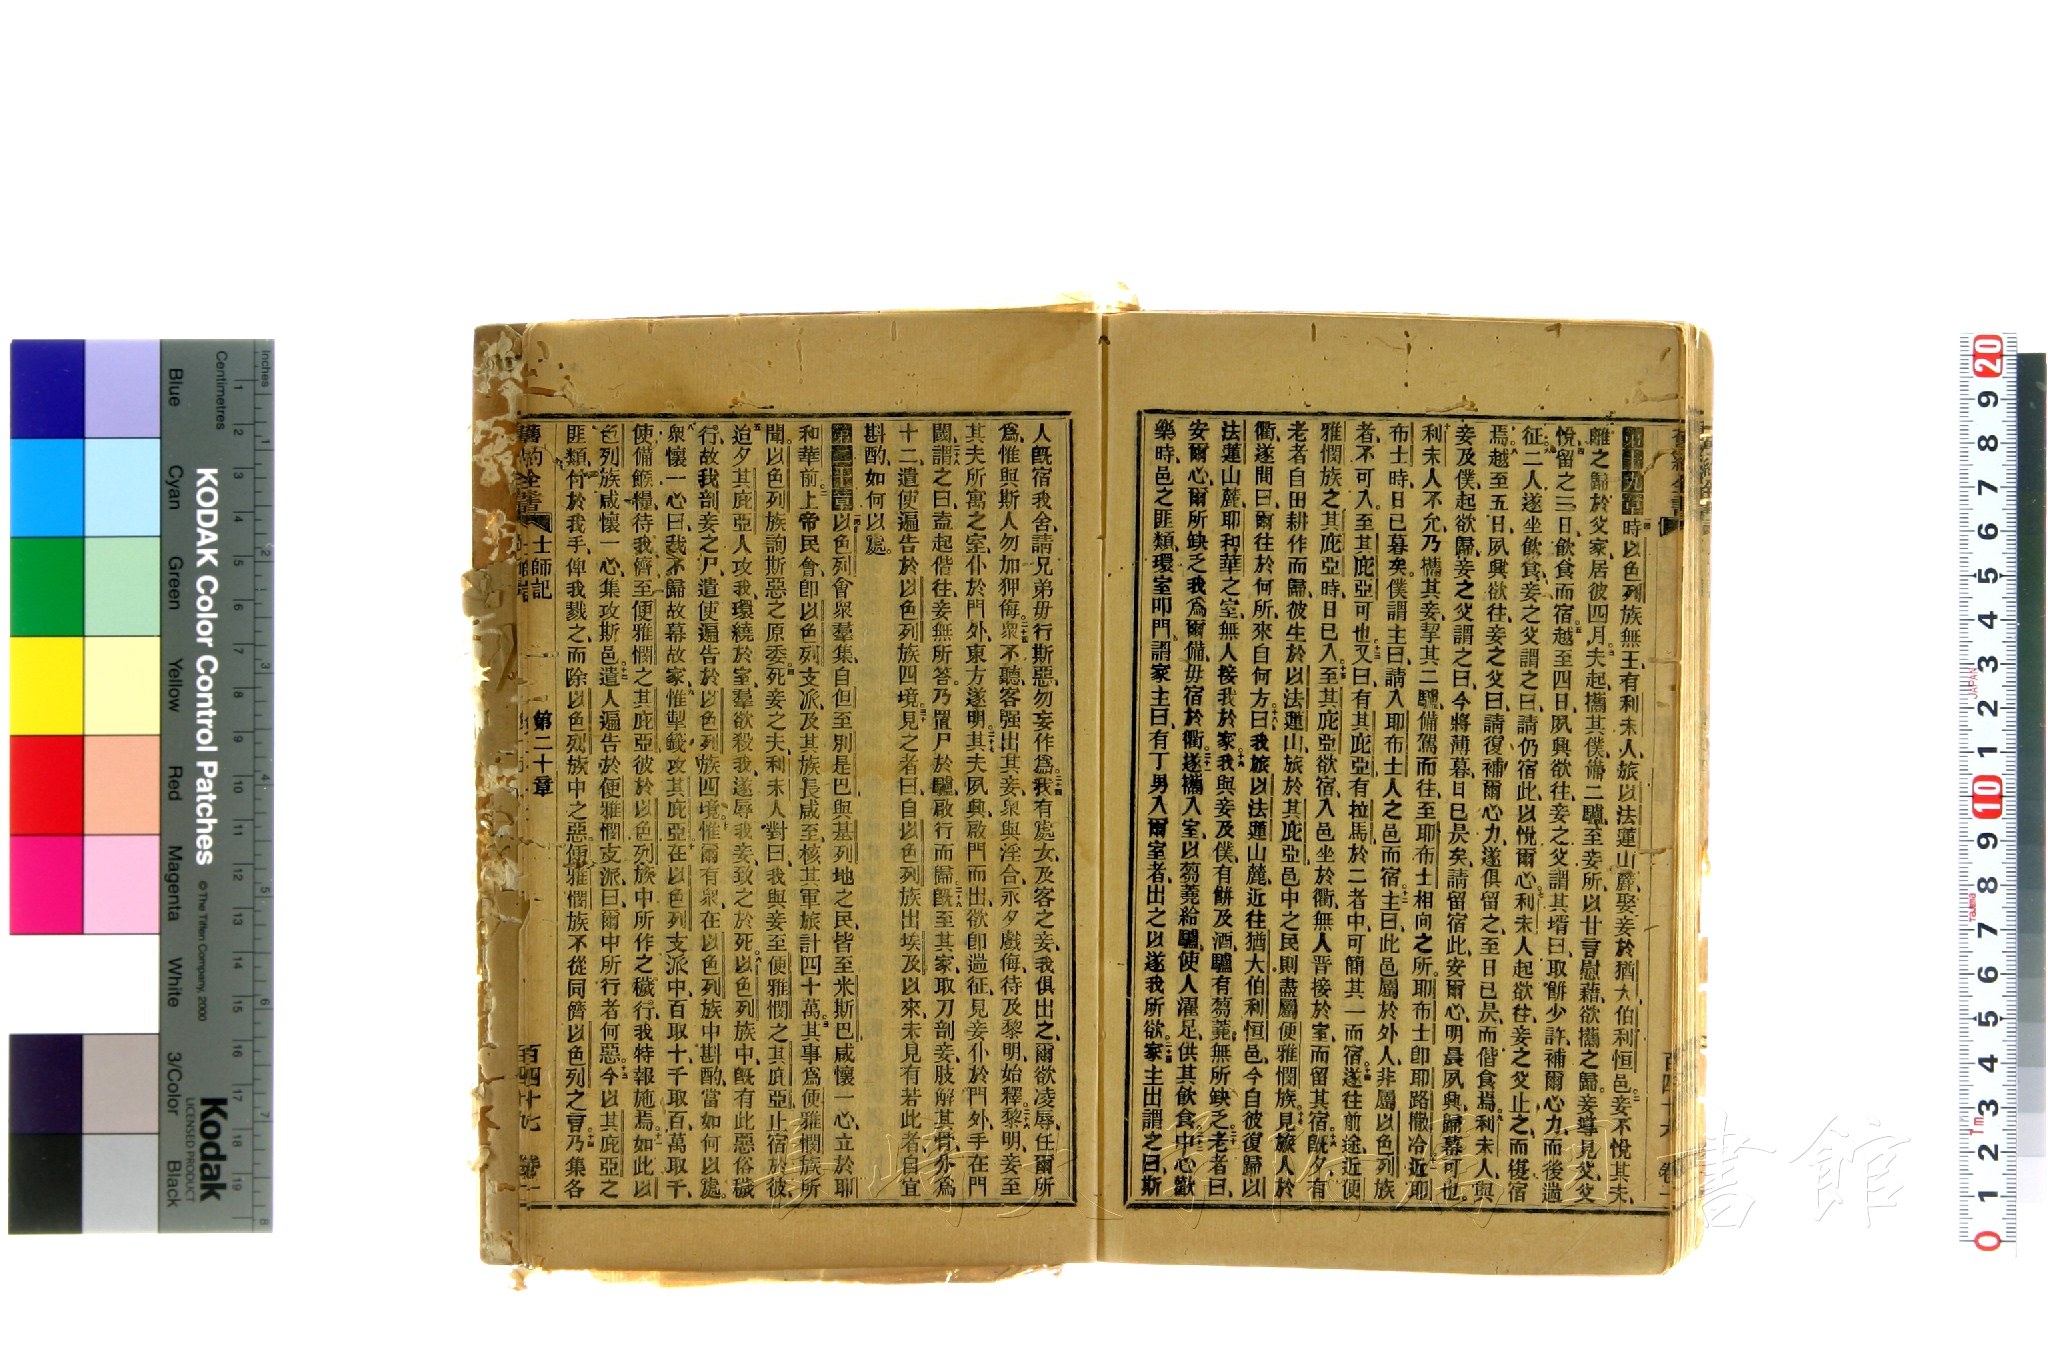 第十九章時以色列族無王有利未人旅以法蓮山麓娶妾於猶大伯利恒邑妾不悅其夫
離之歸於父家居彼四月夫起攜其僕備二驢至妾所以甘言慰藉欲攜之歸妾導見父父
悅留之三日飲食而宿越至四日夙興欲往妾之父謂其壻曰取餅少許補爾心力而後遄
征二人遂坐飲食妾之父謂之曰請仍宿此以悅爾心利未人起欲往妾之父止之而復宿
焉越至五日夙興欲往妾之父曰請復補爾心力遂俱留之至日已昃而偕食焉利未人與
妾及僕起欲歸妾之父謂之曰今將薄暮日已昃矣請留宿此安爾心明晨夙興歸幕可也
利未人不允乃攜其妾挈其二驢備駕而往至耶布士相向之所耶布士即耶路撒冷近耶
布士時日已暮矣僕謂主曰請入耶布士人之邑而宿主曰此邑屬於外人非屬以色列族
者不可入至其庇亞可也又曰有其庇亞有拉馬於二者中可簡其一而宿遂往前途近便
雅憫族之其庇亞時日已入至其庇亞欲宿入邑坐於衢無人晋接於室而留其宿既夕有
老者自田耕作而歸彼生於以法蓮山旅於其庇亞邑中之民則盡屬便雅憫族見旅人於
衢遂問曰爾往於何所來自何方曰我旅以法蓮山麓近往猶大伯利恒邑今自彼復歸以
法蓮山麓耶和華之室無人接我於家我與妾及僕有餅及酒驢有芻蕘無所缺乏老者曰
安爾心爾所缺乏我爲爾備毋宿於衢遂攜入室以芻蕘給驢使人濯足供其飲食中心歡
樂時邑之匪類環室叩門謂家主曰有丁男入爾室者出之以遂我所欲家主出謂之曰斯
人既宿我舍請兄弟毋行斯惡勿妄作爲我有處女及客之妾我俱出之爾欲凌辱任爾所
爲惟與斯人勿加狎侮衆不聽客强出其妾衆與淫合永夕戲侮待及黎明始釋黎明妾至
其夫所寓之室仆於門外東方遂明其夫夙興啟門而出欲即遄征見妾仆於門外手在門
閾謂之曰盍起偕往妾無所答乃置尸於驢啟行而歸既至其家取刀剖妾肢解其骨分爲
十二遣使遍告於以色列族四境見之者曰自以色列族出埃及以來未見有若此者自宜
斟酌如何以處
第二十章以色列會衆羣集自但至別是巴與基列地之民皆至米斯巴咸懷一心立於耶
和華前上帝民會即以色列支派及其族長咸至核其軍旅計四十萬其事爲便雅憫族所
聞以色列族詢斯惡之原委死妾之夫利未人對曰我與妾至便雅憫之其庇亞止宿於彼
迨夕其庇亞人攻我環繞於室羣欲殺我遂辱我妾致之於死以色列族中既有此惡俗穢
行故我剖妾之尸遣使遍告於以色列族四境惟爾有衆在以色列族中斟酌當如何以處
衆懷一心曰我不歸故幕故家惟掣籤攻其庇亞在以色列支派中百取十千取百萬取千
使備餱糧待我儕至便雅憫之其庇亞彼於以色列族中所作之穢行我特報施焉如此以
色列族咸懷一心集攻斯邑遣人遍告於便雅憫支派曰爾中所行者何惡今以其庇亞之
匪類付於我手俾我戮之而除以色列族中之惡便雅憫族不從同儕以色列之言乃集各
士師記 第二十章 百四十七